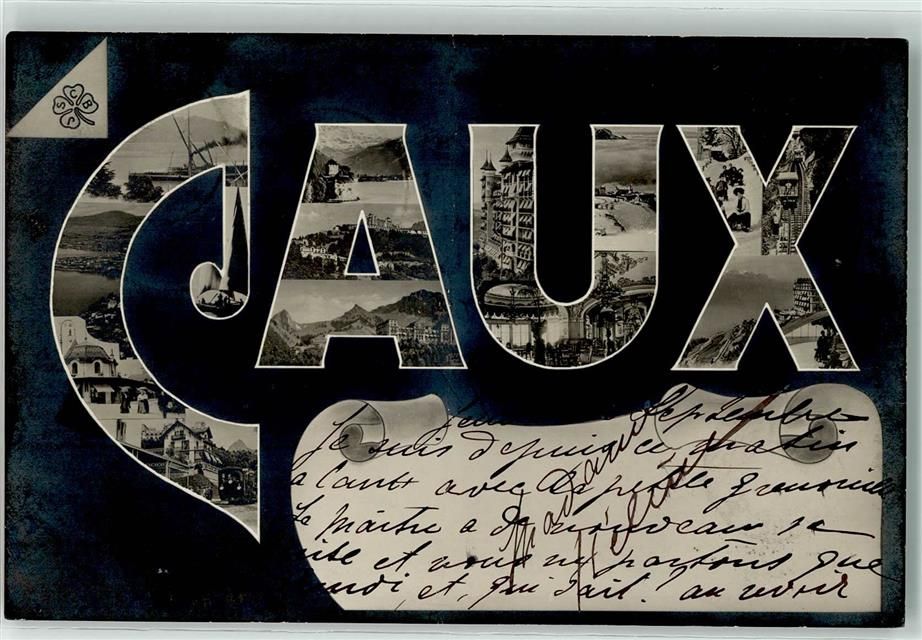 SCBJ
CAUX
Septembre
Je suis depuis ce matin
à Caux avec la petite grenouille
Le Maître a de nouveau sa
et nous ne partons que
et, qui sait! au revoir
Madame